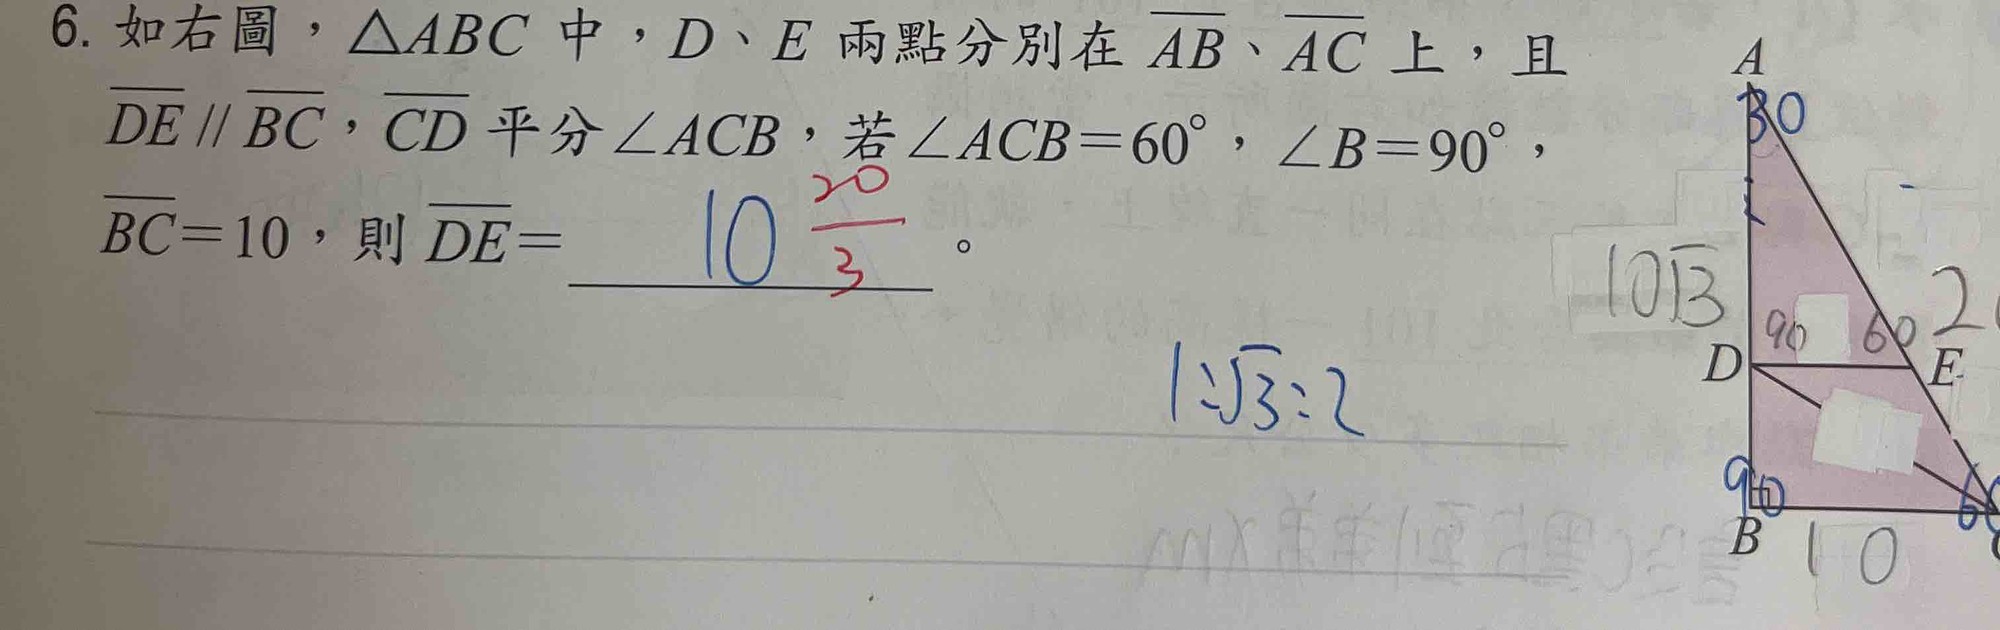 6. 如右圖，△ABC 中，D、E 兩點分別在 AB、AC 上，且
DE // BC，CD 平分∠ACB，若∠ACB＝60°，∠B＝90°，
BC＝10，則 DE＝ 10 20/3 。
1:√3:2
A
30
10√3
2
90 60
D E
90 6
B 10